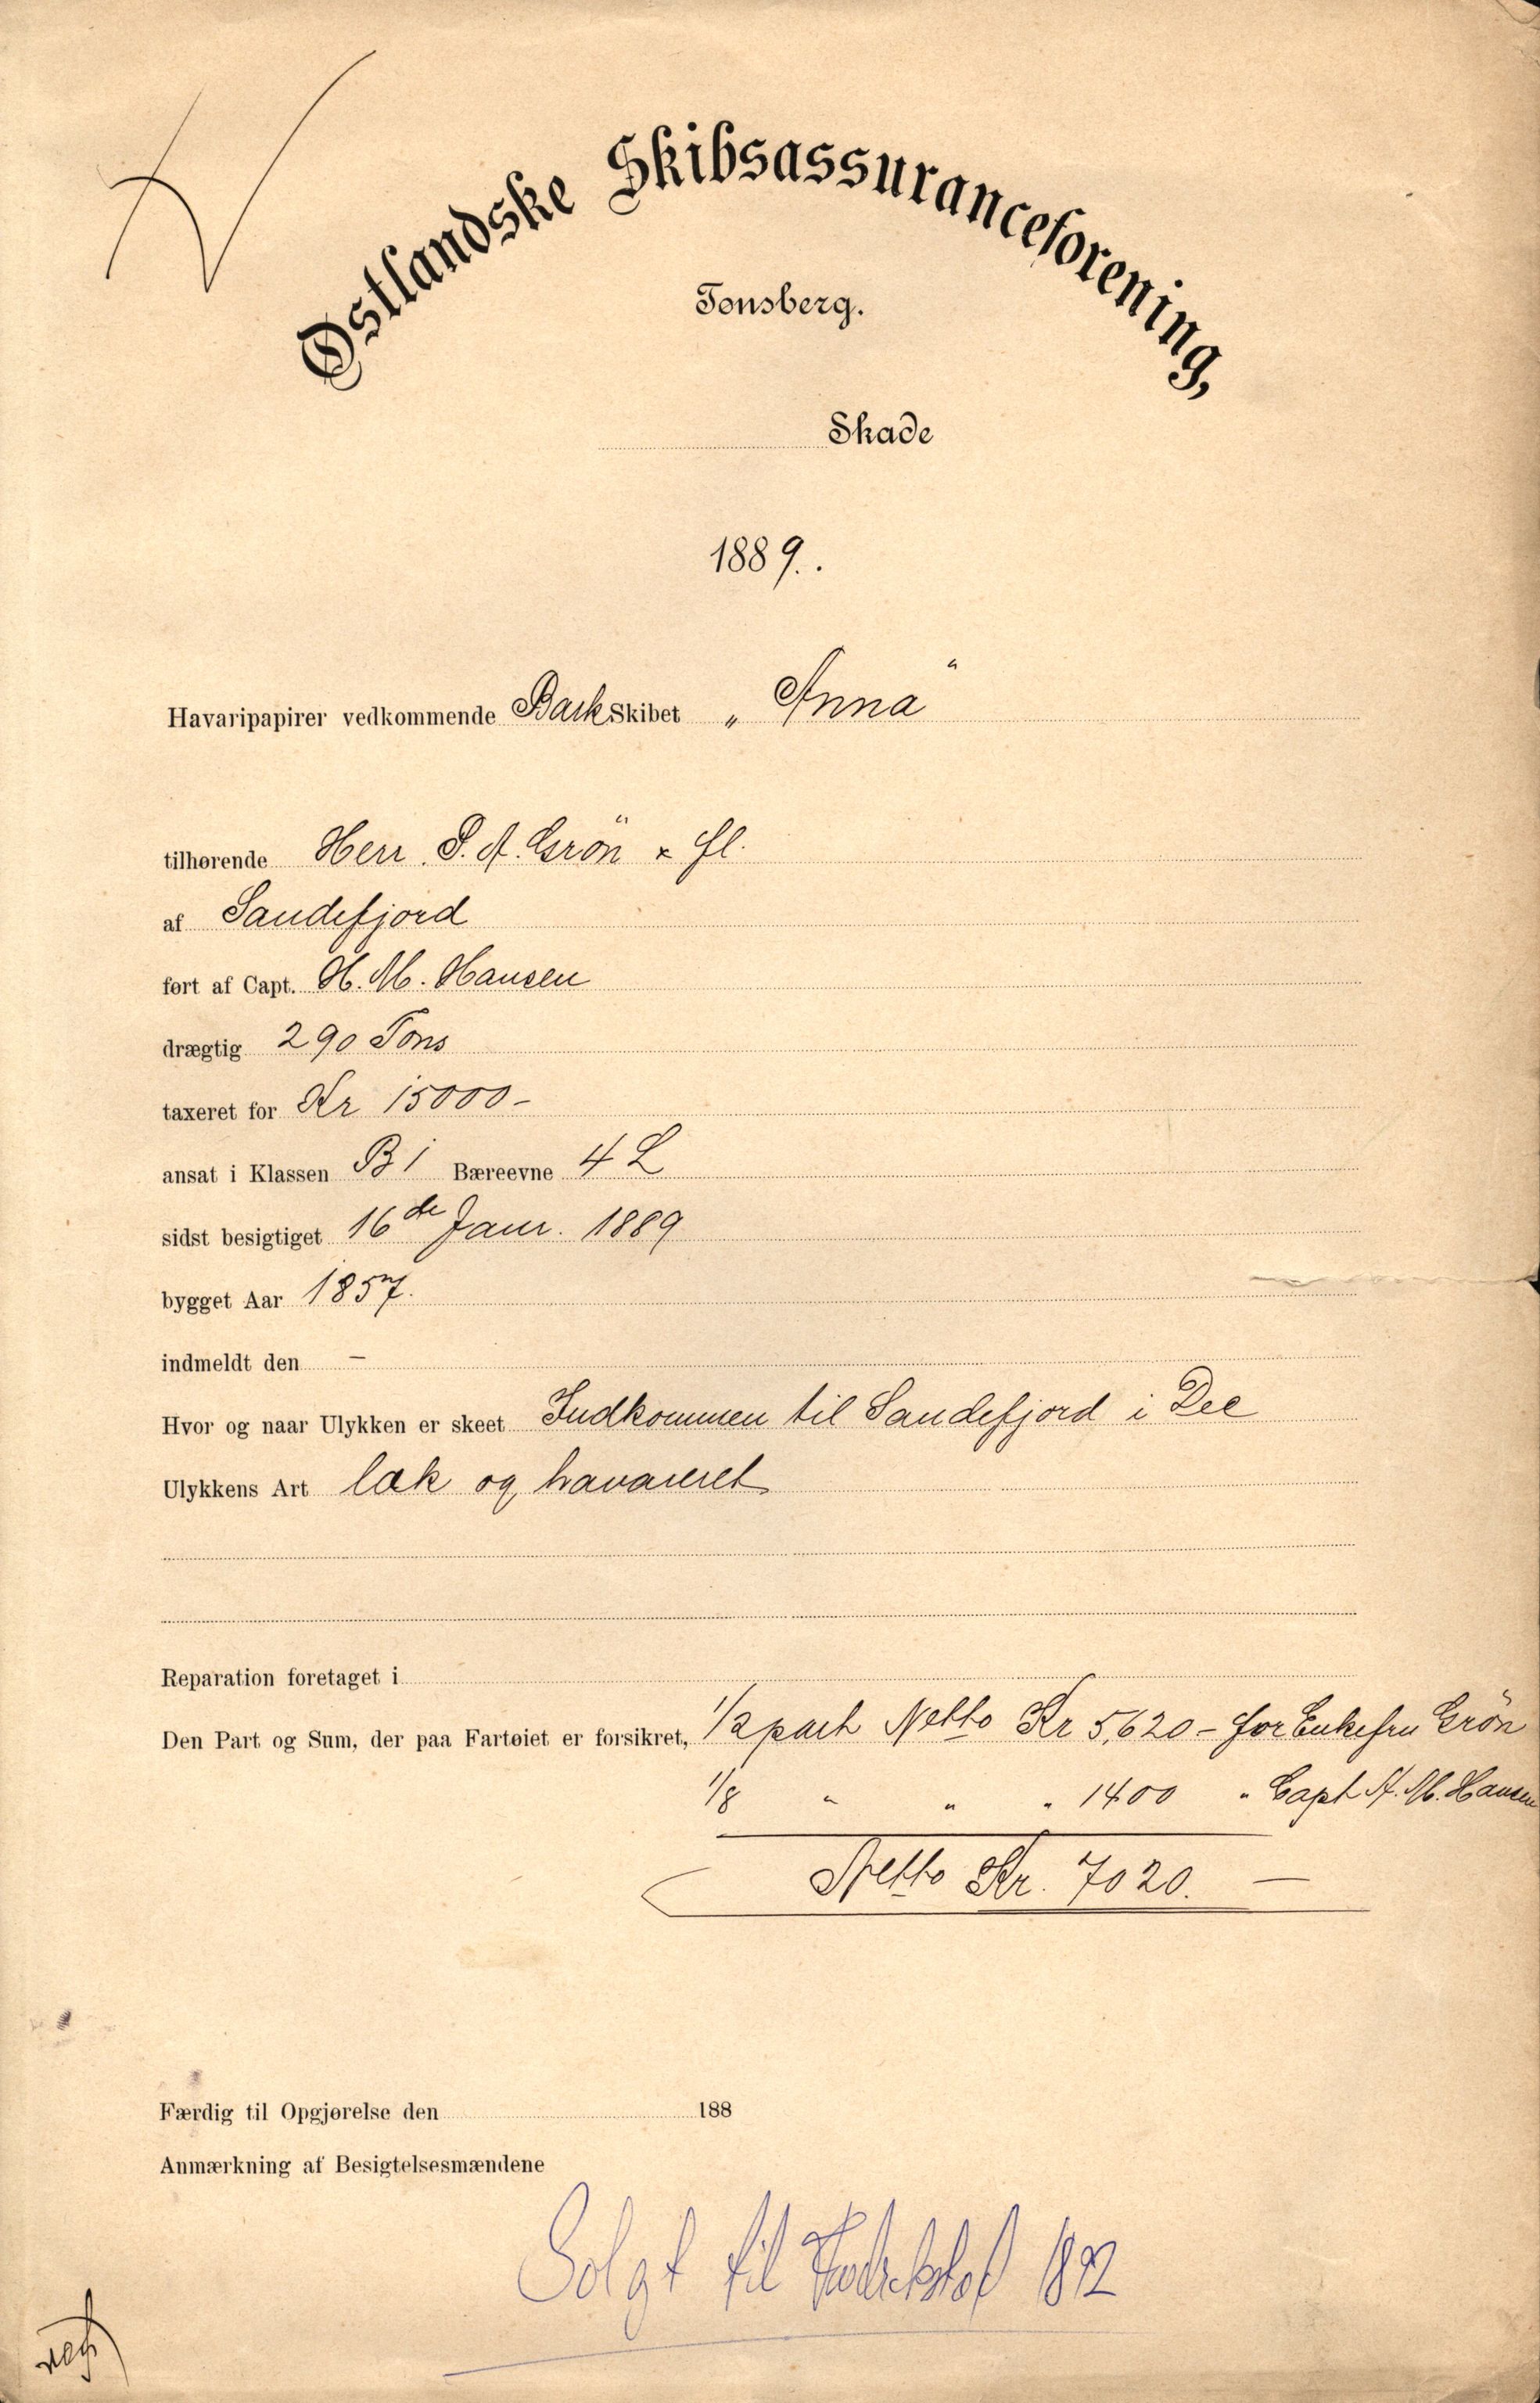 Østlandske Skibsassuranceforening,
Tønsberg.
Skade
1889.
Havaripapirer vedkommende Bark Skibet „Anna“
tilhørende Herr P. A. Grön & fl.
af Sandefjord
ført af Capt. H. M. Hansen
drægtig 290 Tons
taxeret for Kr 15000-
ansat i Klassen B 1 Bæreevne 4 L
sidst besigtiget 16de Janr. 1889
bygget Aar 1857.
indmeldt den –
Hvor og naar Ulykken er skeet Indkommen til Sandefjord i Dec
Ulykkens Art læk og havareret
Reparation foretaget i
Den Part og Sum, der paa Fartøiet er forsikret, 1/2 part Netto Kr 5,620- for Enkefru Grön
1/8 " " " 1400 " Capt H. M. Hansen
Netto Kr. 7020. —
Færdig til Opgjørelse den 188
Anmærkning af Besigtelsesmændene
Solgt til 1892